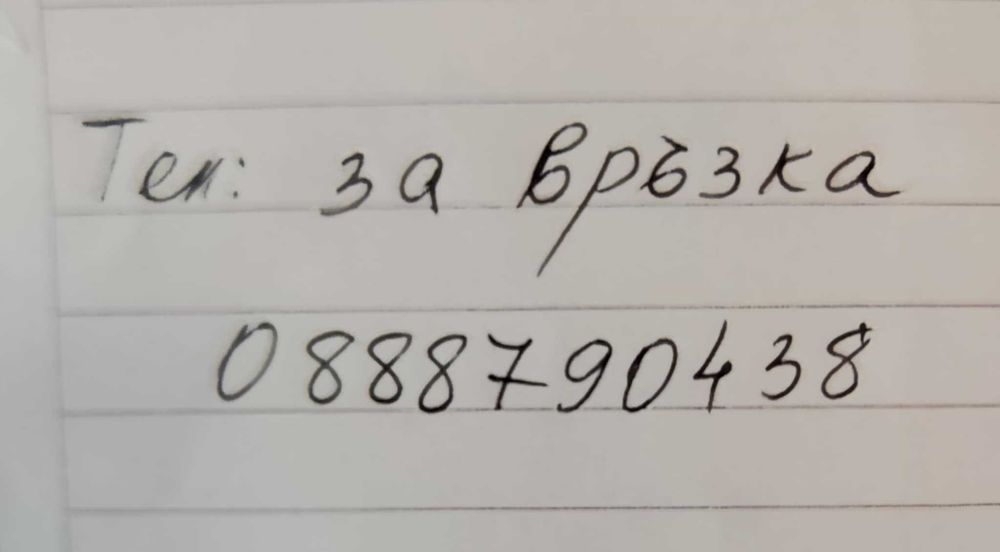 Тел: за връзка
0888790438